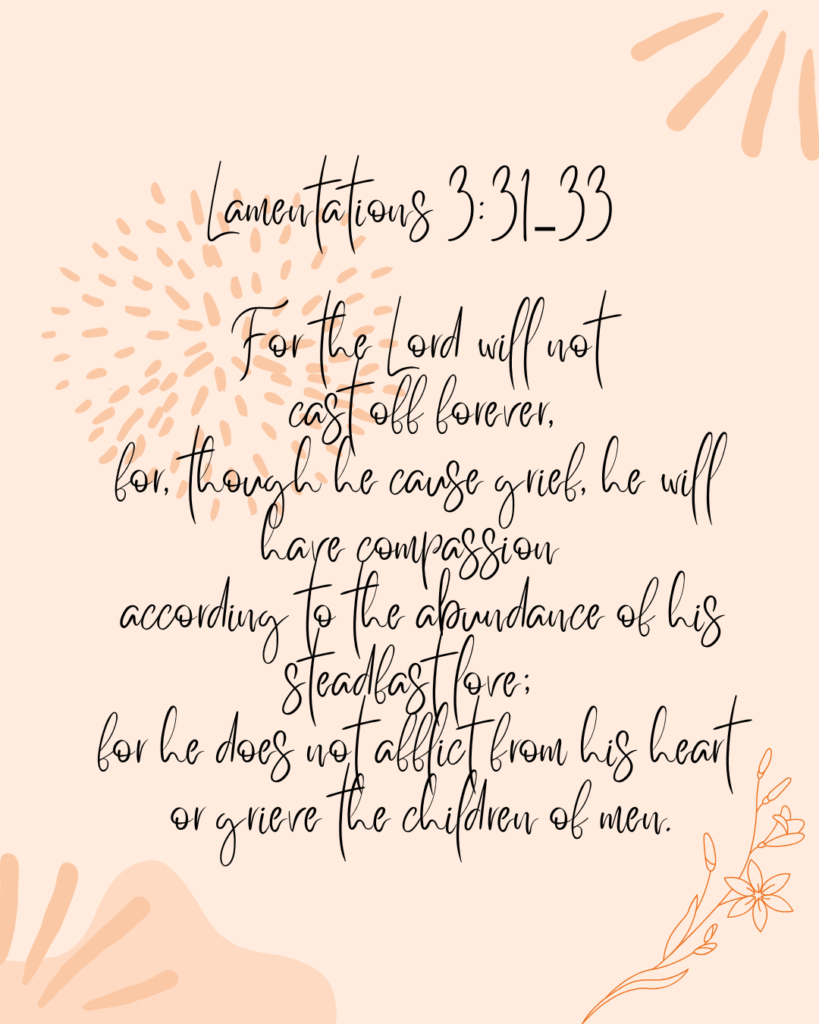 Lamentations 3:31_33
For the Lord will not
cast off forever,
for, though he cause grief, he will
have compassion
according to the abundance of his
steadfast love;
for he does not afflict from his heart
or grieve the children of men.